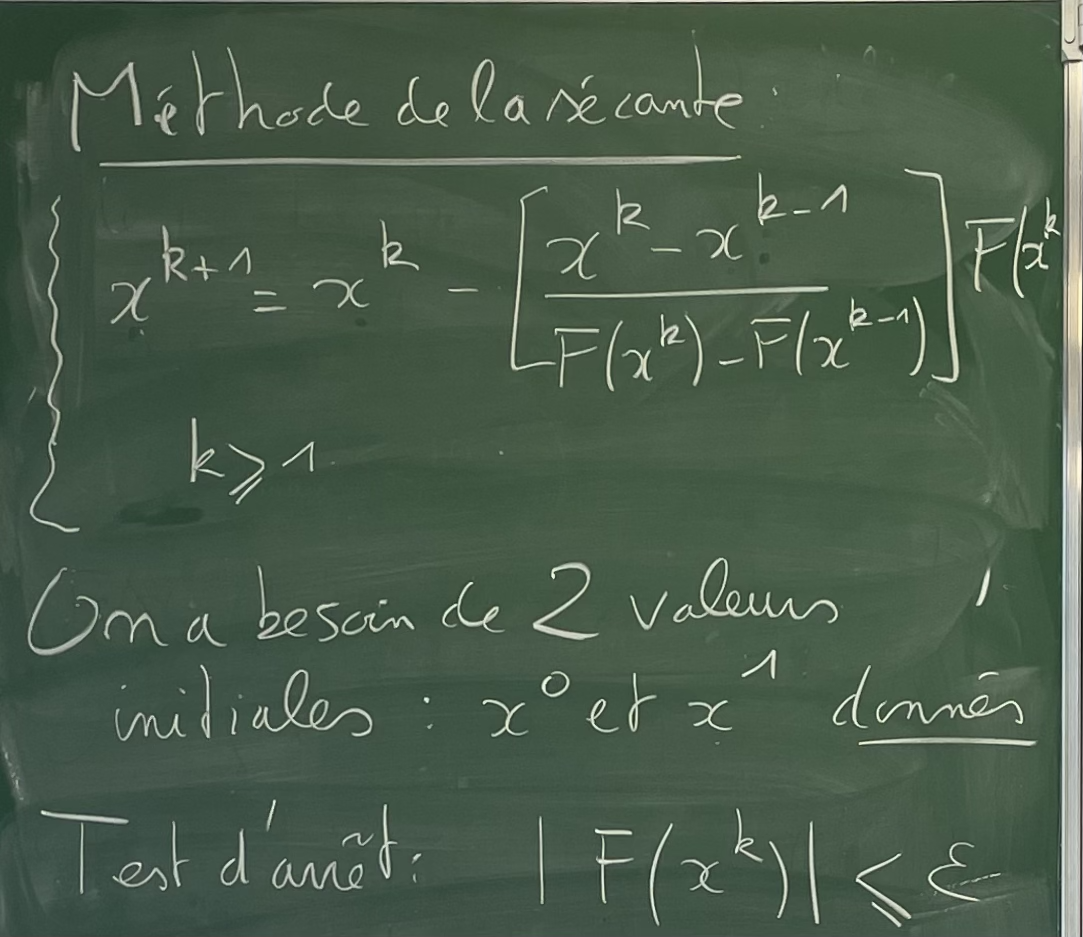 Méthode de la sécante
x^{k+1} = x^k - [ (x^k - x^{k-1}) / (F(x^k) - F(x^{k-1})) ] F(x^k
k ⩾ 1
On a besoin de 2 valeurs
initiales : x^0 et x^1 donnés
Test d'arrêt : |F(x^k)| ⩽ ε